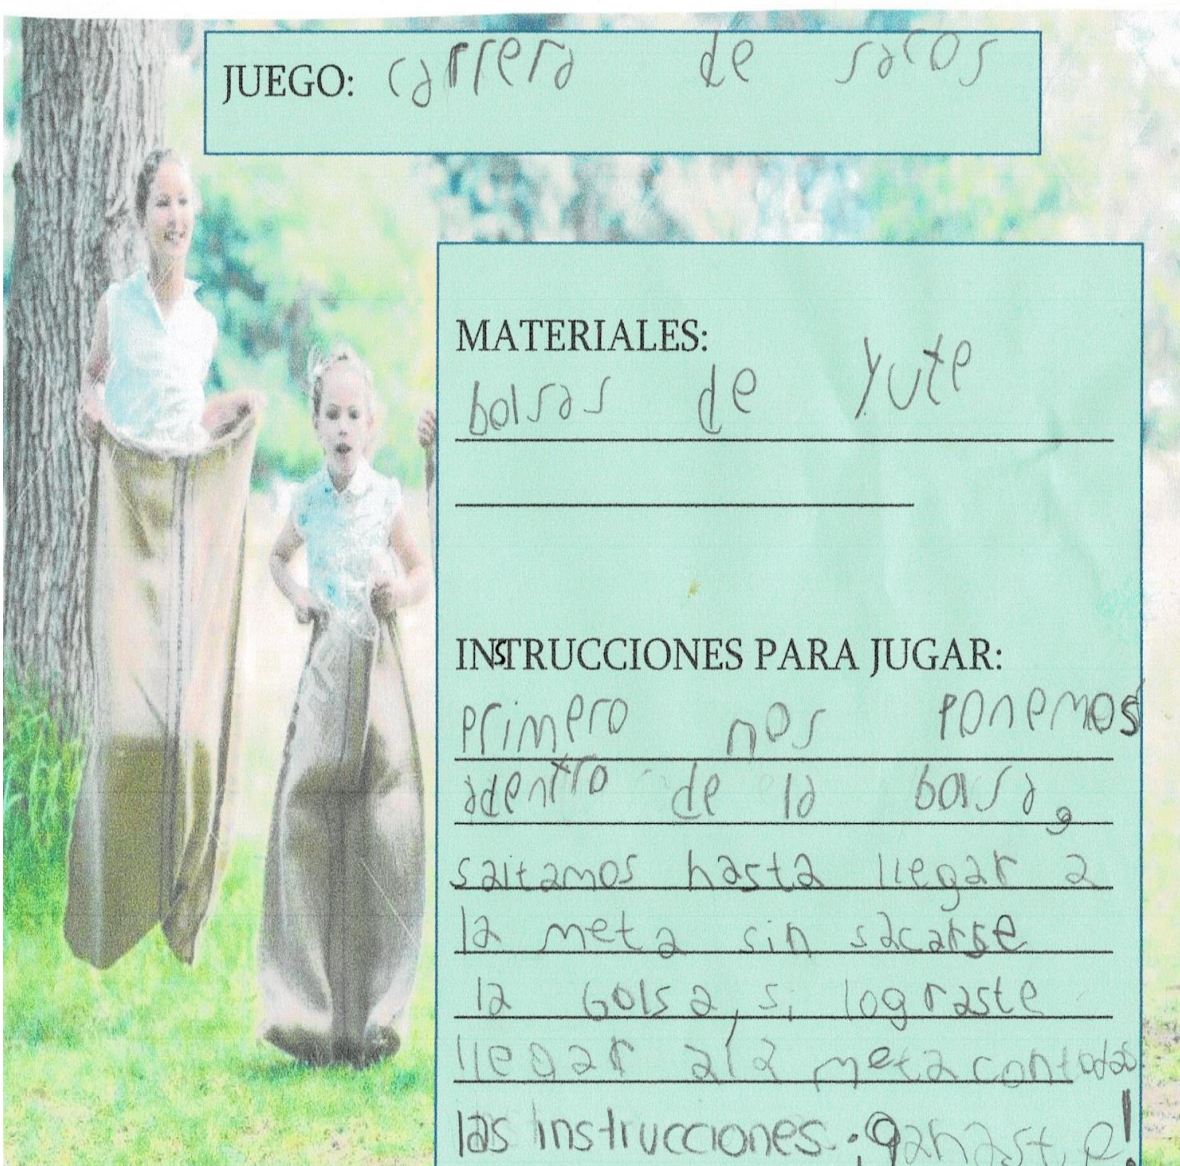 JUEGO: carrera de sacos
MATERIALES:
bolsas de yute
INSTRUCCIONES PARA JUGAR:
primero nos ponemos
adentro de la bolsa,
saltamos hasta llegar a
la meta sin sacarse
la bolsa, si lograste
llegar a la meta con todas
las instrucciones. ¡ganaste!